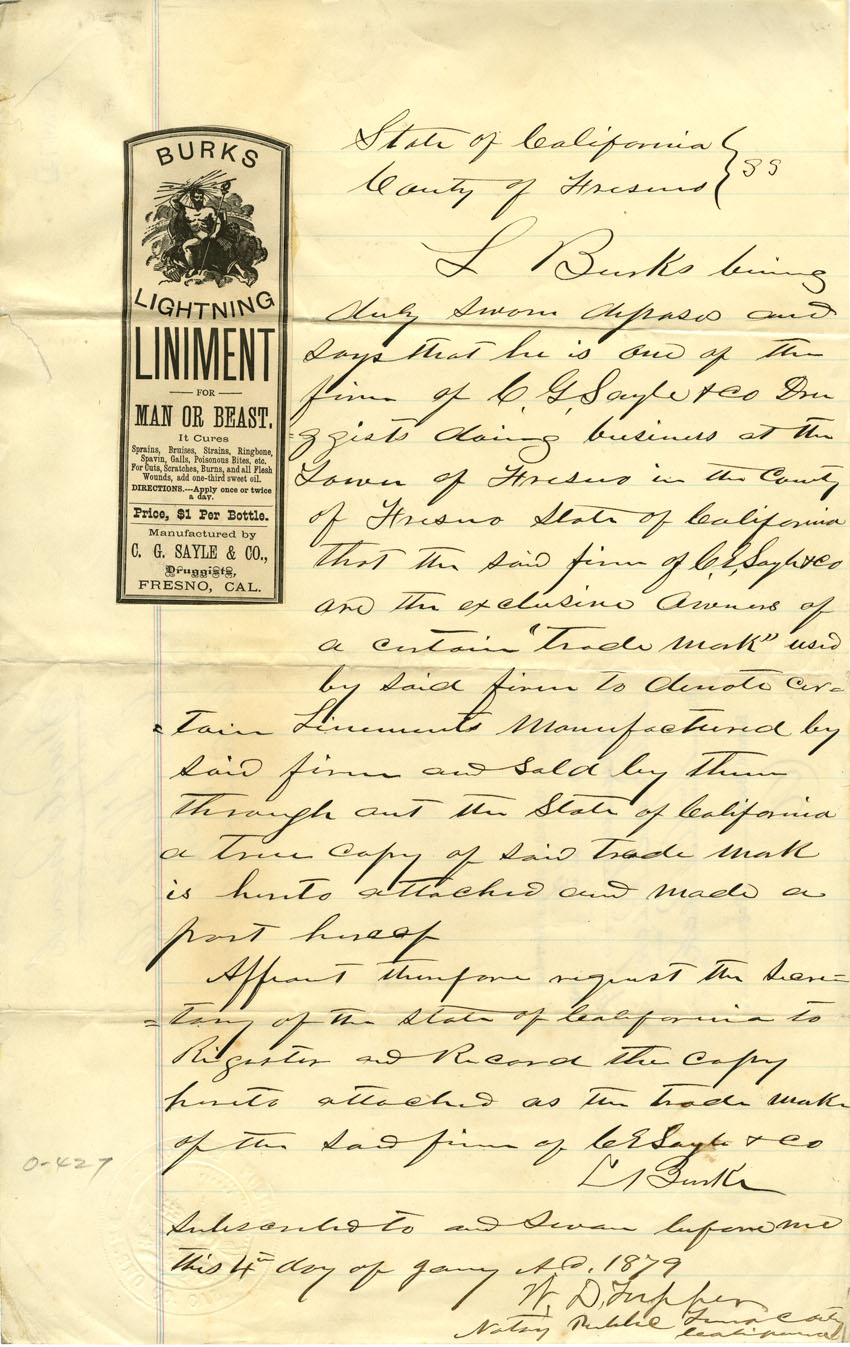 BURKS
LIGHTNING
LINIMENT
FOR
MAN OR BEAST.
It Cures
Sprains, Bruises, Strains, Ringbone,
Spavin, Galls, Poisonous Bites, etc.
For Cuts, Scratches, Burns, and all Flesh
Wounds, add one-third sweet oil.
DIRECTIONS.---Apply once or twice
a day.
Price, $1 Per Bottle.
Manufactured by
C. G. SAYLE & CO.,
Druggists,
FRESNO, CAL.
State of California
County of Fresno } SS
L Burks being
duly sworn deposes and
says that he is one of the
firm of C. G. Sayle & Co Dru
=ggists doing business at the
Town of Fresno in the County
of Fresno State of California
that the said firm of C. G. Sayle & Co
are the exclusive Owners of
a certain "trade mark" used
by said firm to denote cer=
=tain Liniments Manufactured by
said firm and sold by them
through out the State of California
a true copy of said trade mark
is hereto attached and made a
part hereof
Affiant therefore request the Secre=
=tary of the State of California to
Rigester and Record the copy
hereto attached as the trade mark
of the said firm of C G Sayle & Co
L Burks
0-427
Subscribed to and Sworn before me
this 4th day of Jany A.D. 1879
W. D. Tupper
Notary Public Fresno County
California